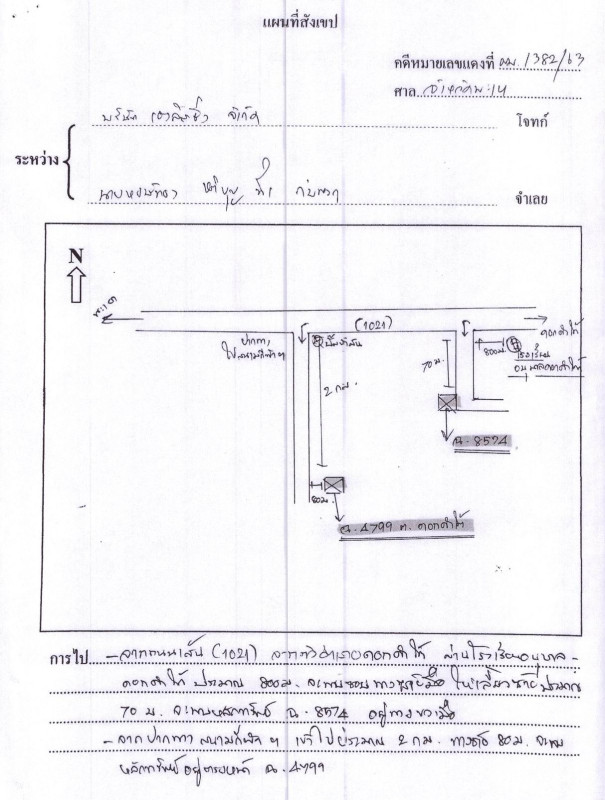 แผนที่สังเขป
คดีหมายเลขแดงที่ ผบ. 1382/63
ศาล
บริษัท จำกัด
โจทก์
ระหว่าง
นาย ที่ 1 กับพวก
จำเลย
N
พะเยา
(1021)
ดอกคำใต้
ปากทาง
ปั๊มน้ำมัน
2 กม.
70 ม.
800 ม.
โรงเรียน
อนุบาลดอกคำใต้
ฉ. 8574
80 ม.
ฉ. 4799 ต. ดอกคำใต้
การไป - จากถนนเส้น (1021) จากตัวอำเภอดอกคำใต้ ผ่านโรงเรียนอนุบาล -
ดอกคำใต้ ประมาณ 800 ม. จะพบซอยทางซ้ายมือ ให้เลี้ยวซ้ายประมาณ
70 ม. จะพบหลักทรัพย์ ฉ. 8574 อยู่ทางขวามือ
- จากปากทาง สนามกีฬาฯ เข้าไปประมาณ 2 กม. 80 ม. จะพบ
หลักทรัพย์อยู่ ฉ. 4799